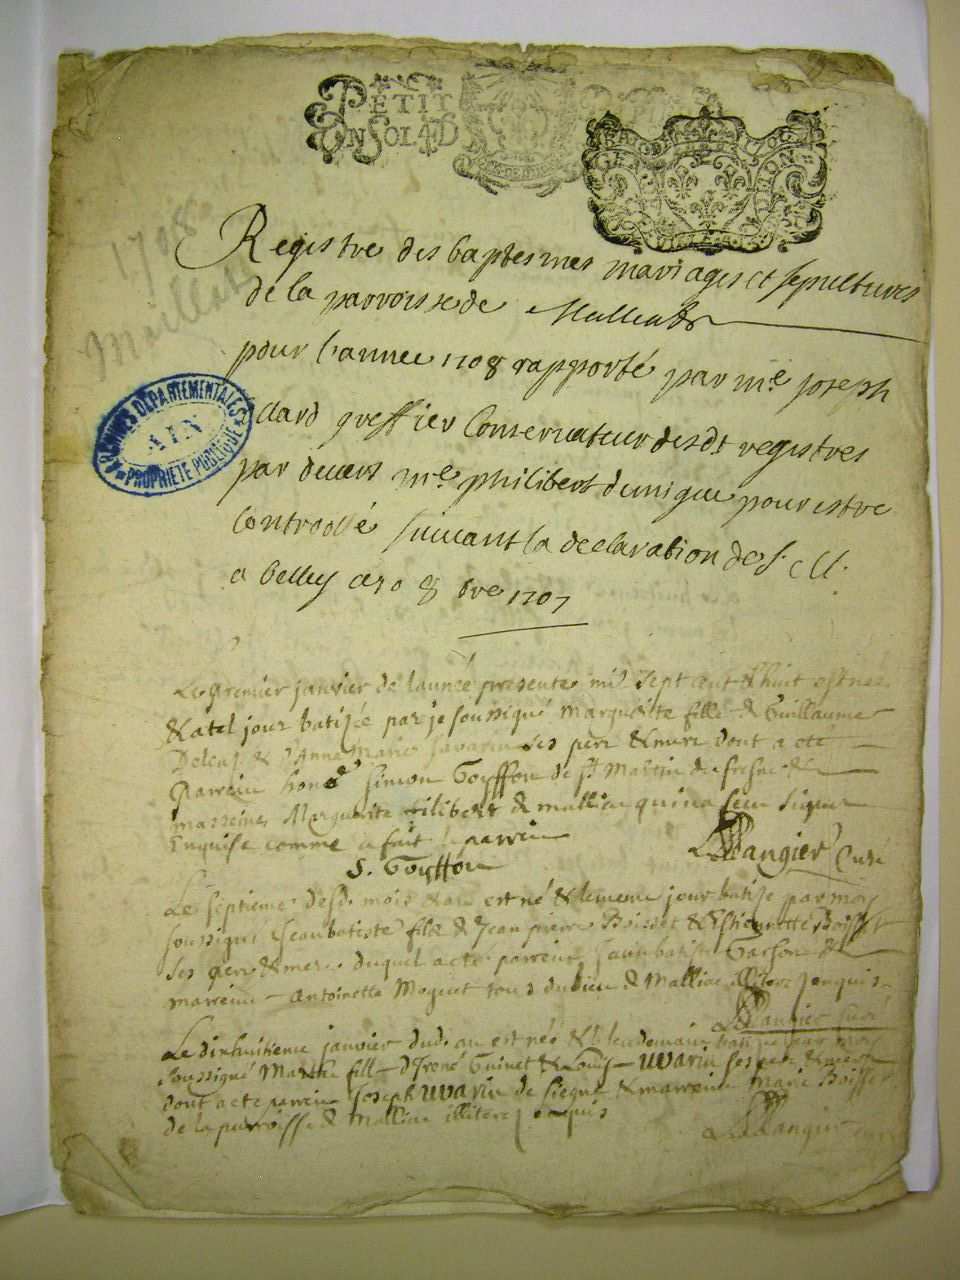 PETIT
ON SOL 4D
1708
Registre des baptesmes mariages et sepultures
de la parroisse de
pour l'annee 1708 rapporté par me joseph
greffier Conservateur desdt registres
par devers me philibert pour estre
Controollé suivant la declaration de S. M.
a belley ce 30 8bre 1707
ARCHIVES DEPARTEMENTALES
AIN
PROPRIETE PUBLIQUE
Le premier janvier de lannée presente mil sept cent & huit est née
& a tel jour batizée par je soussigné Marguerite fille de Guillaume
& d'Anne Marie Savarin ses pere & mere dont a eté
parrein hon Simon Goyffon de St Martin du fresne &
marreine Marguerite filibert de malliac qui na sceu signer
Enquise comme a fait le parrein
S. Goyffon
Langier Curé
Le septieme desd. mois & an est né & le meme jour batizé par moy
soussigné jean batiste filz de jean pierre Boisset & Esthiennette Boisset
ses pere & mere duquel a eté parrein jean batiste Garson &
marreine Antoinette Moguet tous du lieu de Malliac illiterez enquis
Langier Curé
Le dixhuitieme janvier dud. an est née & le lendemain batizée par moy
soussigné fille d'Irené Guinet & Louise uvarin ses pere & mere
dont a eté parrein joseph uvarin de & marreine Marie Boisset
de la parroisse de Malliac illiterez enquis
Langier curé